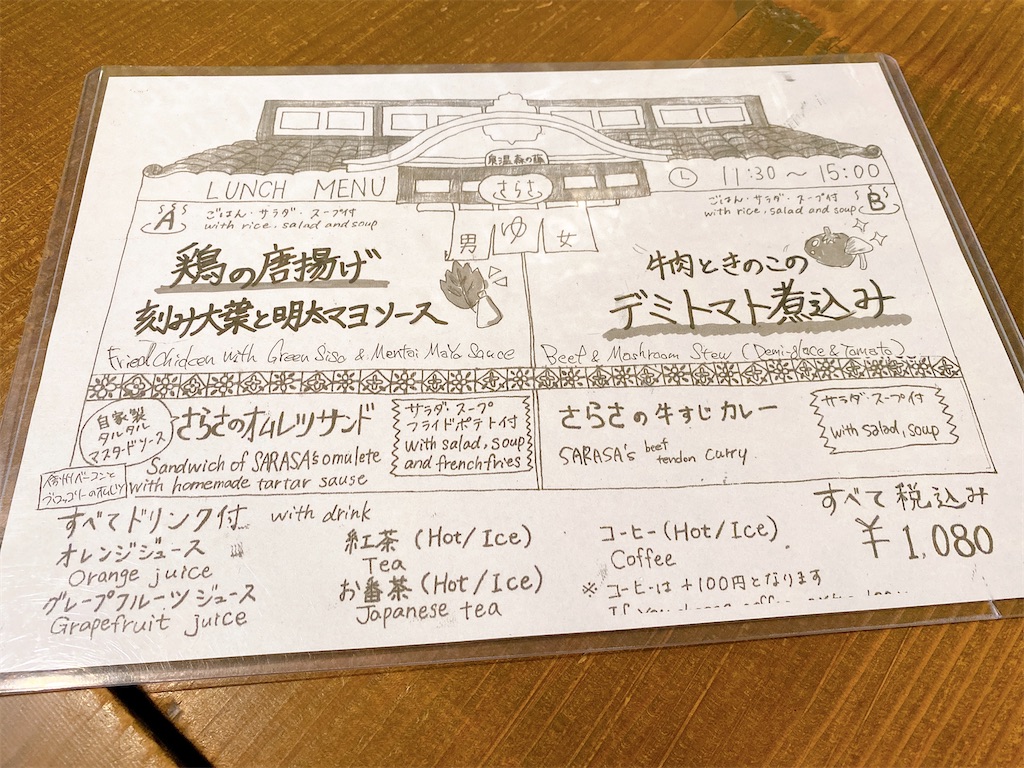 さらさ
LUNCH MENU
11:30 〜 15:00
男 ゆ 女
A
ごはん・サラダ・スープ付
with rice, salad and soup
鶏の唐揚げ
刻み大葉と明太マヨソース
Fried Chicken with Green Siso & Mentai Mayo Sauce
ごはん・サラダ・スープ付
with rice, salad and soup
B
牛肉ときのこの
デミトマト煮込み
Beef & Moshroom Stew (Demi-glace & Tomato)
自家製
タルタル
マスタードソース
さらさのオムレツサンド
Sandwich of SARASA's omulete
with homemade tartar sause
サラダ・スープ
フライドポテト付
with salad, soup
and frenchfries
さらさの牛すじカレー
SARASA's beef tendon curry
サラダ・スープ付
with salad, soup
すべてドリンク付 with drink
オレンジジュース
Orange juice
グレープフルーツジュース
Grapefruit juice
紅茶 (Hot/Ice)
Tea
お番茶 (Hot/Ice)
Japanese tea
コーヒー (Hot/Ice)
Coffee
※ コーヒーは +100円となります
すべて税込み
¥1,080